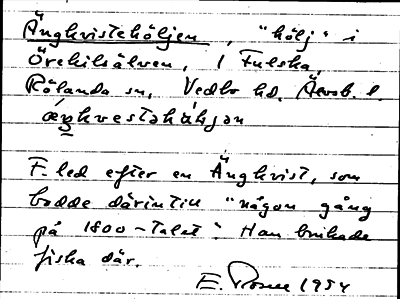 Ängkvistehöljen, "hölj" i
Örekilsälven, i Fulska,
Rölanda sn, Vedbo hd. Älvsb. l.
æŋkvestəhàhjən
F-led efter en Ängkvist, som
bodde därintill "någon gång
på 1800-talet". Han brukade
fiska där.
E. 1954